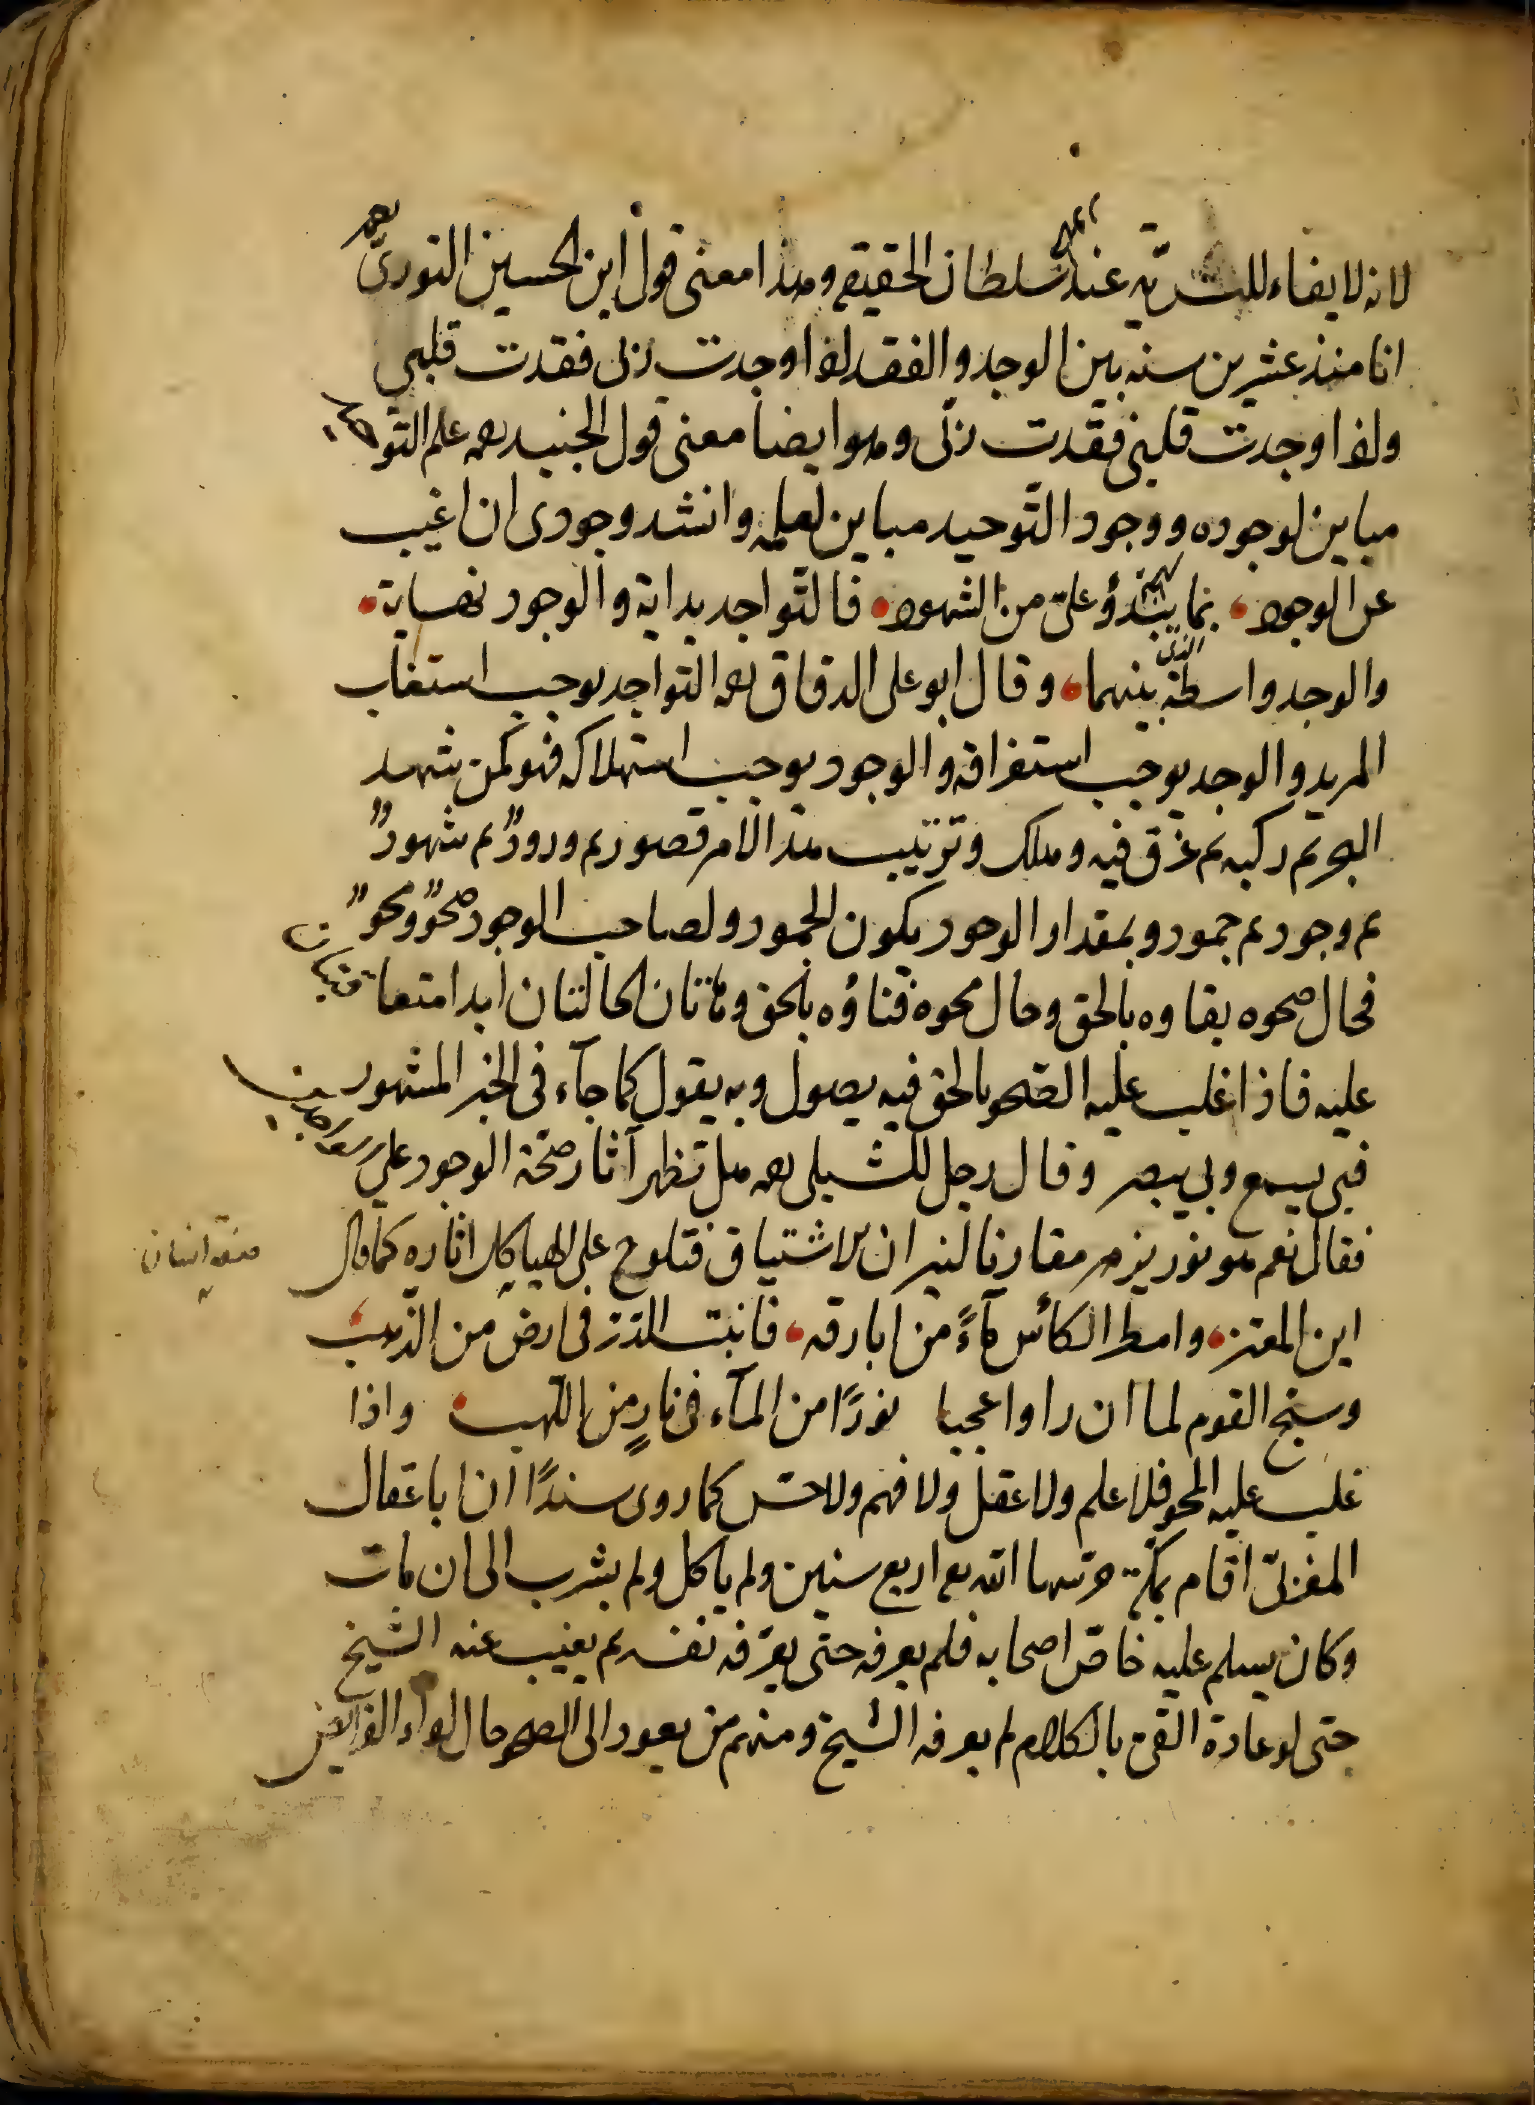 لانه لا بقاء للبشرية عند سلطان الحقيقة وهذا معنى قول ابن الحسين النورى رحمه
انا منذ عشرين سنه بين الوجد والفقد اذا وجدت ربى فقدت قلبى
واذا وجدت قلبى فقدت ربّى وهو ايضا معنى قول الجنيد رحمه علم التوحيد
مباين لوجوده ووجود التّوحيد مباين لعلمه وانشد وجودى ان اغيب
عن الوجود بما يبدؤ علىّ من الشهود فالتّواجد بداية والوجود نهاية
والوجد واسطة بينهما وقال ابو على الدقاق رحمه التواجد يوجب استيعاب
المريد والوجد يوجب استغراقه والوجود يوجب استهلاكه فهو كمن شهد
البحر ثم ركبه ثم غرق فيه وهلك وترتيب هذا الامر قصود ثم ورودٌ ثم شهودٌ
ثم وجود ثم خمود وبمقدار الوجود يكون الخمود ولصاحب الوجود صحوٌ ومحوٌ
فحال صحوه بقاوه بالحق وحال محوه فناؤه بالحق وهاتان الحالتان ابدا متعاقبتان
عليه فاذا غلب عليه الصّحو بالحق فبه يصول وبه يقول كما جآء فى الخبر المشهور
فبى يسمع وبى يبصر وقال رجل للشبلى رحمه هل تظهر آثار صحّة الوجود على
فقال نعم هو نور يزهر مقارنا لنيران الاشتياق فتلوح على الهياكل اثاره كما قال
ابن المعتز وامطر الكأس مآءً من ابارقه فانبت الدّرّ فى ارض من الذّهب
وسبّح القوم لما ان راوا عجبا نورًا من المآء فى نارٍ من اللّهب واذا
غلب عليه المحو فلا علم ولا عقل ولا فهم ولا حسّ كما روى سندًا ان ابا عقال
المغربىّ اقام بمكة حرسها الله تع اربع سنين ولم ياكل ولم يشرب الى ان مات
وكان يسلم عليه خاصّ اصحابه فلم يعرفه حتى يعرّفه نفسه ثم يغيب عنه الشيخ
حتى لو عادة القى بالكلام لم يعرفه الشيخ ومنهم من يعود الى الصحو حال اداء الفرايض